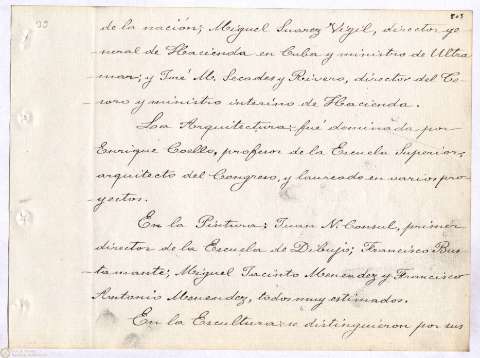 de la nación; Miguel Suarez Vigil, director ge-
neral de Hacienda en Cuba y ministro de Ultra
mar; y José M. Secades y Rivero, director del Te-
soro y ministro interino de Hacienda.
La Arquitectura: fué dominada por
Enrique Coello, profesor de la Escuela Superior;
arquitecto del Congreso, y laureado en varios pro-
yectos.
En la Pintura: Juan N. Consul, primer
director de la Escuela de Dibujo; Francisco Bus
tamante; Miguel Jacinto Menendez y Francisco
Antonio Menendez, todos muy estimados.
En la Escultura: se distinguieron por sus